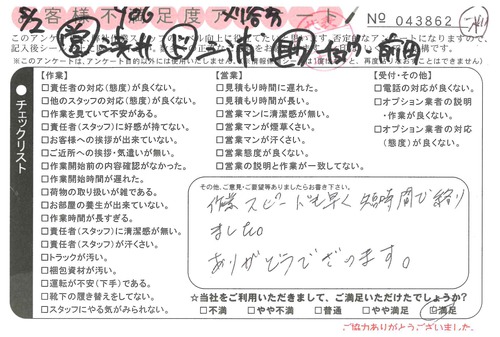 お客様不満足度アンケート
No 043862
【作業】
□責任者の対応(態度)が良くない。
□他のスタッフの対応(態度)が良くない。
□作業を見ていて不安がある。
□責任者(スタッフ)に好感が持てない。
□お客様への挨拶が出来ていない。
□ご近所への挨拶・気遣いが無い。
□作業開始前の内容確認がなかった。
□作業開始時間が遅れた。
□荷物の取り扱いが雑である。
□お部屋の養生が出来ていない。
□作業時間が長すぎる。
□責任者(スタッフ)に清潔感が無い。
□責任者(スタッフ)が汗くさい。
□トラックが汚い。
□梱包資材が汚い。
□運転が不安(下手)である。
□靴下の履き替えをしてない。
□スタッフにやる気がみられない。
【営業】
□見積もり時間に遅れた。
□見積もり時間が長い。
□営業マンに清潔感が無い。
□営業マンが煙草くさい。
□営業マンが汗くさい。
□営業態度が良くない。
□営業の説明と作業が一致してない。
【受付・その他】
□電話の対応が良くない。
□オプション業者の説明
・作業が良くない。
□オプション業者の対応
(態度)が良くない。
●チェックリスト
その他、ご意見・ご要望等ありましたらお書き下さい。
作業スピードも早く短時間で終り
ました。
ありがとうございます。
☆当社をご利用いただきまして、ご満足いただけたでしょうか?
□不満 □やや不満 □普通 □やや満足 ☑満足
ご協力ありがとうございました。